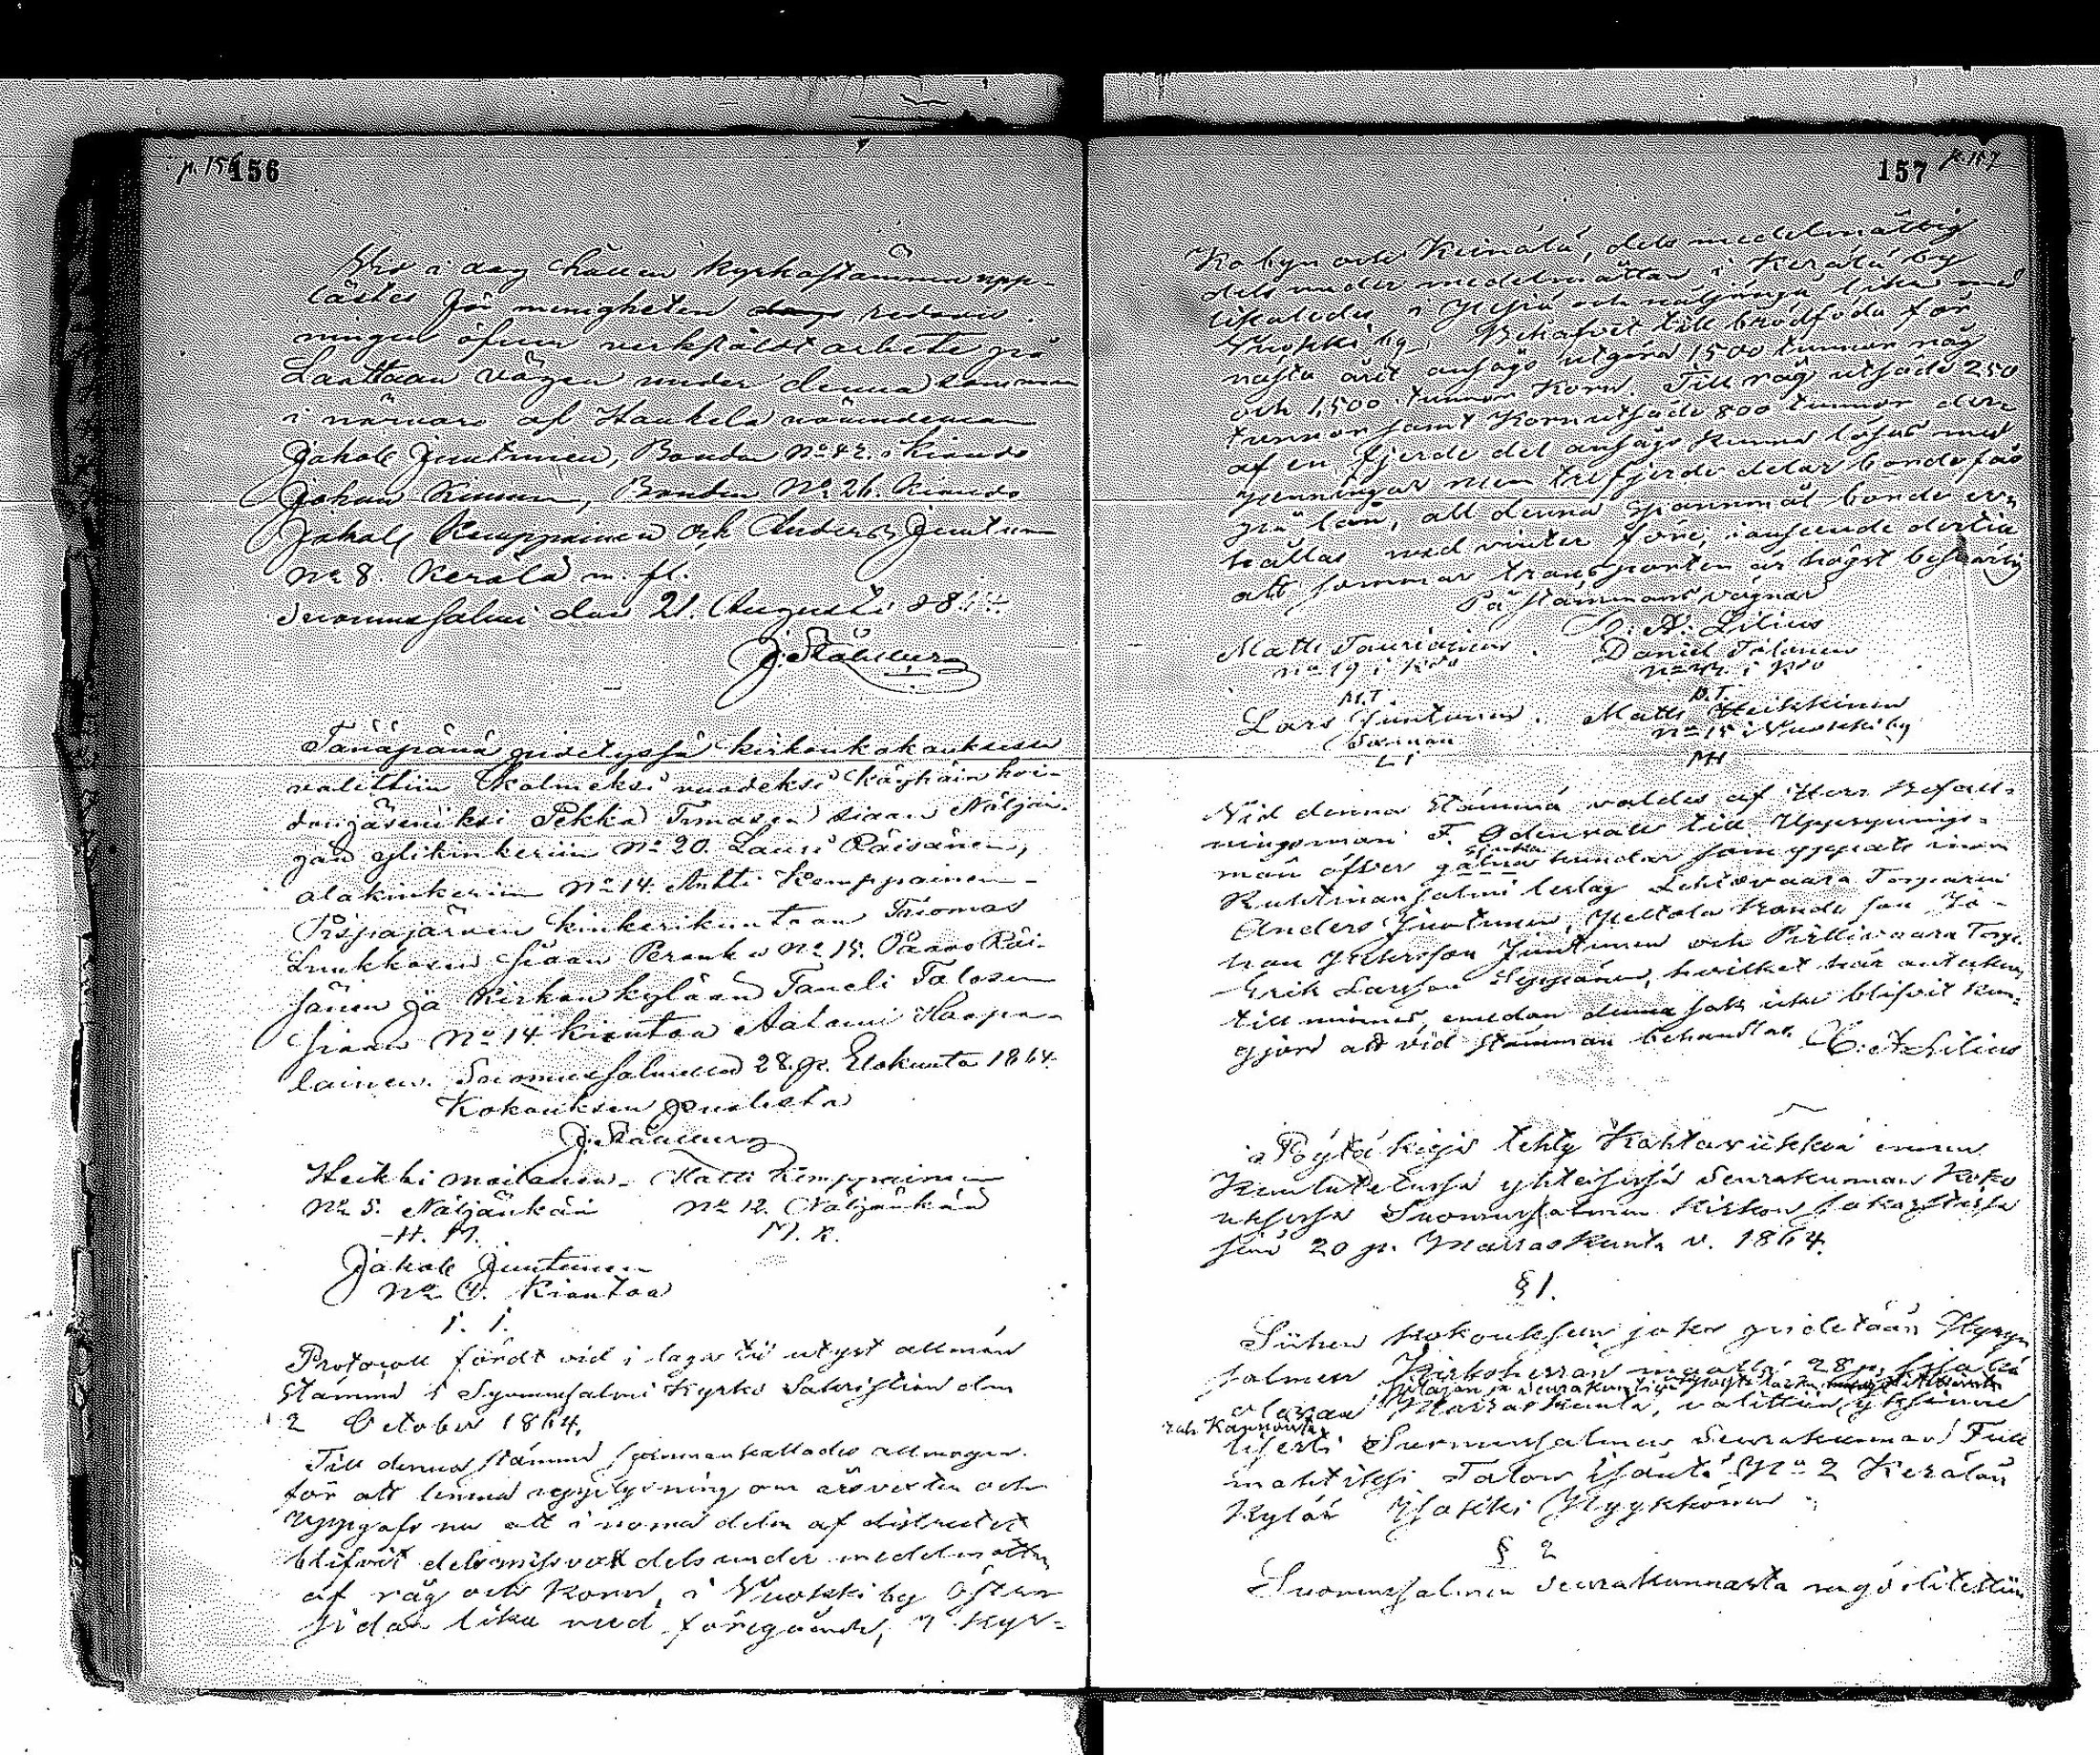 p. 156 156
Wid i dag hållen kyrkostämma upp-
lästes för menigheten redovis-
ningen öfver verkstäldt arbete på
Lauttaan vägen under denna sommar
i närvaro af Haukela nämndeman
Jakob Juntunen, Bonden No 42. Kiando
Johan Kinnunen, Bonden No 26. Kiando
Jakob Keppainen och Anders Juntunen
No 8. Kerälä m. fl.
Suomussalmi den 21. Augusti 1864.
J. Ståhlberg
Tänäpänä pidetyssä kirkonkokouksessa
valittiin kolmeksi vuodeksi köyhäin hoi-
don jäseniksi Pekka Timosen siaan Näljän-
gän ylikinkeriin No 20. Lauri Räisänen,
alakinkeriin No 14. Antti Kemppainen-
Pispajärven kinkerikuntaan Thomas
Luukkosen siaan Peranka No 15. Paavo Räi-
sänen ja Kirkon kylään Taneli Talosen
siaan No 14 kiantoa Aatami Haapa-
lainen. Suomussalmessa 28. p. Elokuuta 1864.
Kokouksen puolesta
J. Ståhlberg
Heikki Moilanen. Matti Kemppainen
No 5. Näljänkän No 12. Näljänkän
H. M. M. K.
Jakob Juntunen
No Kiantoa
I. I.
Protocoll fördt vid i laga tid utlyst allmän
stämma i Suomussalmi Kyrko Sakristian den
2 October 1864.
Till denna stämma sammankallades allmogen
för att lemna upplysning om årsvexten och
uppgafs nu att i norra delen af districtet
blifvit dels missvext dels under medelmåttan
af råg och korn, i Vuokki by Östra
sidan lika med föregående, i Kyr-
157 p. 157
ko byn och Keinälä, dels medelmåttig
dels under medelmåttan i Kerälä by
likaledes i Ylijä och näljängä lika med
Vuokki by. Behofvet till brödföda för
nästa året ansågs utgöra 1500 tunnor råg
och 1,500 tunnor Korn. Till råg utsäde 250
tunnor samt Korn utsäde 800 tunnor deri
af en fjerde del ansågs kunna lösas med
penningar men trefjerde delar borde fås
på lån, att denna spannmål borde er-
hållas med vinter före, i anseende dertill
att sommar transporten är högst besvärlig
På stämmans vägnar
C. A. Lilius
Matts Tauriainen. Daniel Talonen
No 19 i Kdo No 44 i Kdo
M.T. D.T.
Lars Juntunen. Matts Heikkinen
No 15 i Vuokki by
L I MH
Vid denna Stämma valdes af Herr Befall-
ningsman F. Ödenvall till Uppsynings-
män öfver galna hundar som yppats inom
Ruhtinansalmi lestag Lehtovaara Torparen
Anders Juntunen, Peltola bonde son Jo-
han Petersson Juntunen och Pirttivaara Torp.
Erik Larsson Seppänen, hvilket här antecknas
till minnes, emedan denna sak icke blifvit kun-
gjord att vid stämman behandlas C. A. Lilius
Pöytäkirja tehty Kahta viikkoa ennen
Kuulutetussa yhteisessä Seurakunnan Koko
uksessa Suomussalmen Kirkon sakastissa
sinä 20 p. Marraskuuta v. 1864.
§ 1.
Siihen kokouksen joka pidetään Hyryn
salmen Kirkoherran 28 p.
olevaa Marraskuuta, valittiin yksimie
lisesti Suomussalmen Seurakunnan Full
mahtiksi Talon isäntä No 2 Kerälän
Kylän Isakki Nyykkönen.
§ 2
Suomussalmen seurakunnasta